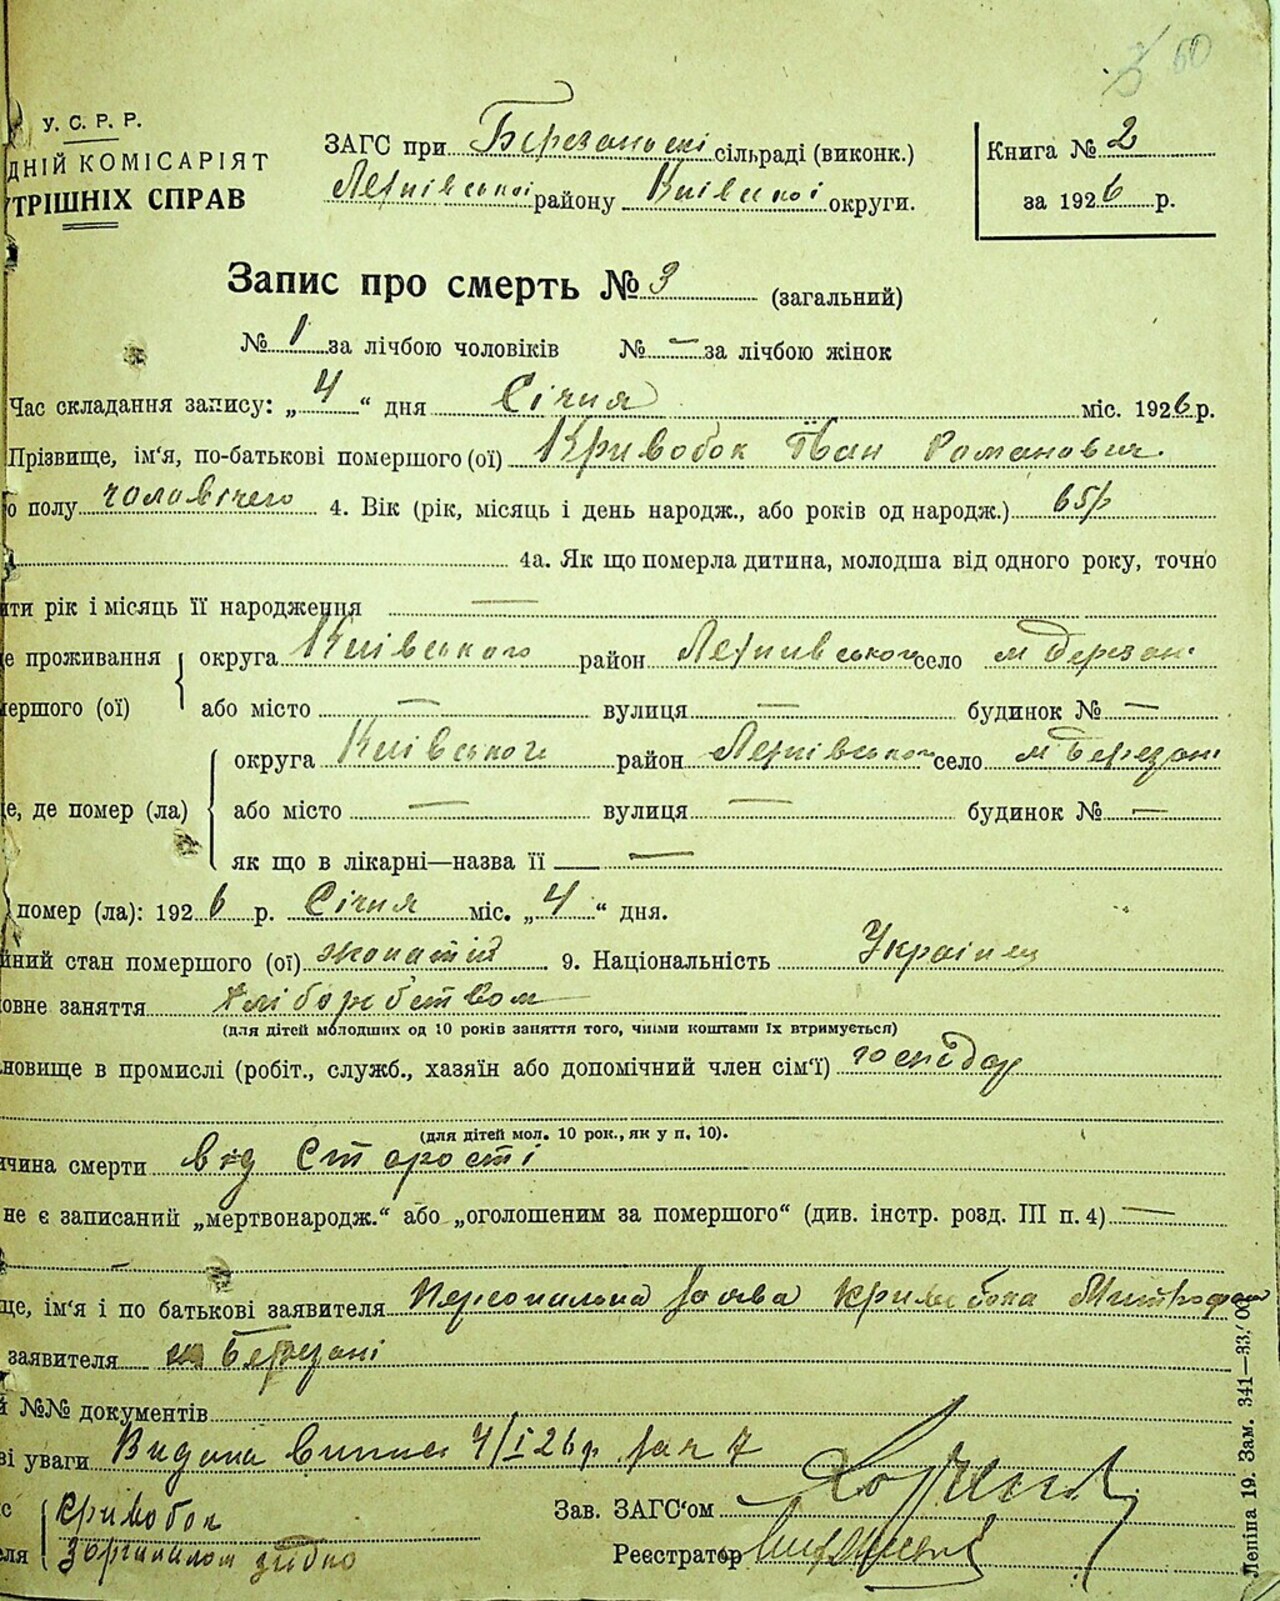 60
У. С. Р. Р.
ДНІЙ КОМІСАРІЯТ
ТРІШНІХ СПРАВ
ЗАГС при Березансткі сільраді (виконк.)
району Київської округи.
Книга № 2
за 1926 р.
Запис про смерть № 3 (загальний)
№ 1 за лічбою чоловіків № — за лічбою жінок
Час складання запису: „4“ дня Січня міс. 1926 р.
Прізвище, ім'я, по-батькові помершого (ої) Кривобок Іван Романович
о полу чоловічего 4. Вік (рік, місяць і день народж., або років од народж.) 65р
4а. Як що померла дитина, молодша від одного року, точно
ити рік і місяць її народження —
е проживання округа Київського район село м Березані
ершого (ої) або місто — вулиця — будинок № —
округа Київського район село м Березані
е, де помер (ла) або місто — вулиця — будинок № —
як що в лікарні—назва її —
помер (ла): 1926 р. Січня міс. „4“ дня.
йний стан помершого (ої) жонатий 9. Національність Українец
овне заняття хліборобством
(для дітей молодших од 10 років заняття того, чиїми коштами їх втримується)
новище в промислі (робіт., служб., хазяїн або допомічний член сім'ї) господар
(для дітей мол. 10 рок., як у п. 10).
чина смерти від Старості
не є записаний „мертвонародж.“ або „оголошеним за помершого“ (див. інстр. розд. III п. 4) —
ще, ім'я і по батькові заявителя Персональна заява Кривобока Митрофан
заявителя м Березані
й №№ документів
ві уваги Видана випис 4/I 26р за № 7
с Кривобок
Зав. ЗАГС'ом
ля З оригиналом згідно
Реєстратор
Леніпа 19. Зам. 341—33.